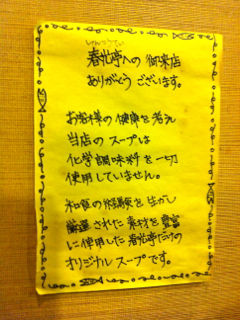 しゅんこうてい
春光亭への御来店
ありがとうございます。
お客様の健康を考え
当店のスープは
化学調味料を一切
使用していません。
和食の経験を生かし
厳選された素材を豊富
に使用した春光亭だけの
オリジナルスープです。